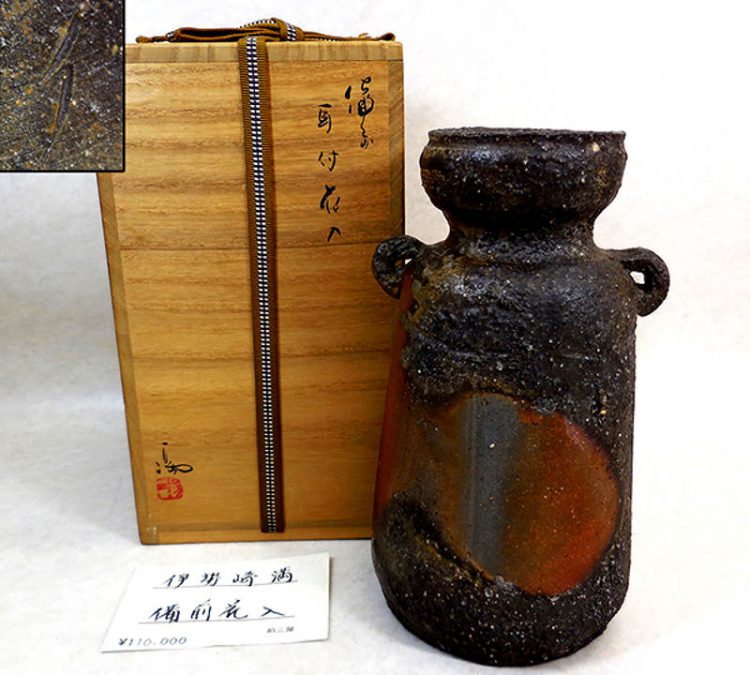 備前
耳付花入
満
伊勢崎満
備前花入
¥110.000